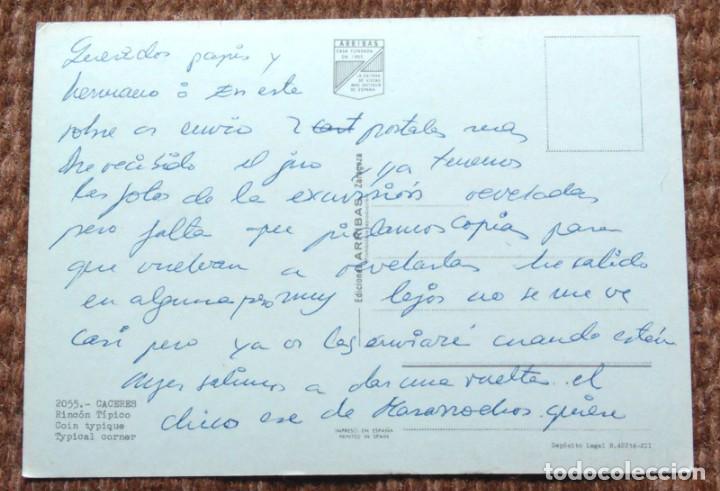 Queridos papis y
hermano: En este
sobre os envio 2 postales mas
he recibido el giro y ya tenemos
las fotos de la excursión reveladas
pero falta que pidamos copias para
que vuelvan a revelarlas he salido
en alguna pero muy lejos no se me ve
casi pero ya os las enviaré cuando estén
Ayer salimos a dar una vuelta. el
chico ese de quiere
ARRIBAS
CASA FUNDADA
EN 1905
LA EDITORA
DE VISTAS
MAS ANTIGUA
DE ESPAÑA
Ediciones ARRIBAS Zaragoza
2055.- CACERES
Rincón Típico
Coin typique
Typical corner
IMPRESO EN ESPAÑA
PRINTED IN SPAIN
Depósito Legal B.
todocoleccion
todocoleccion.net